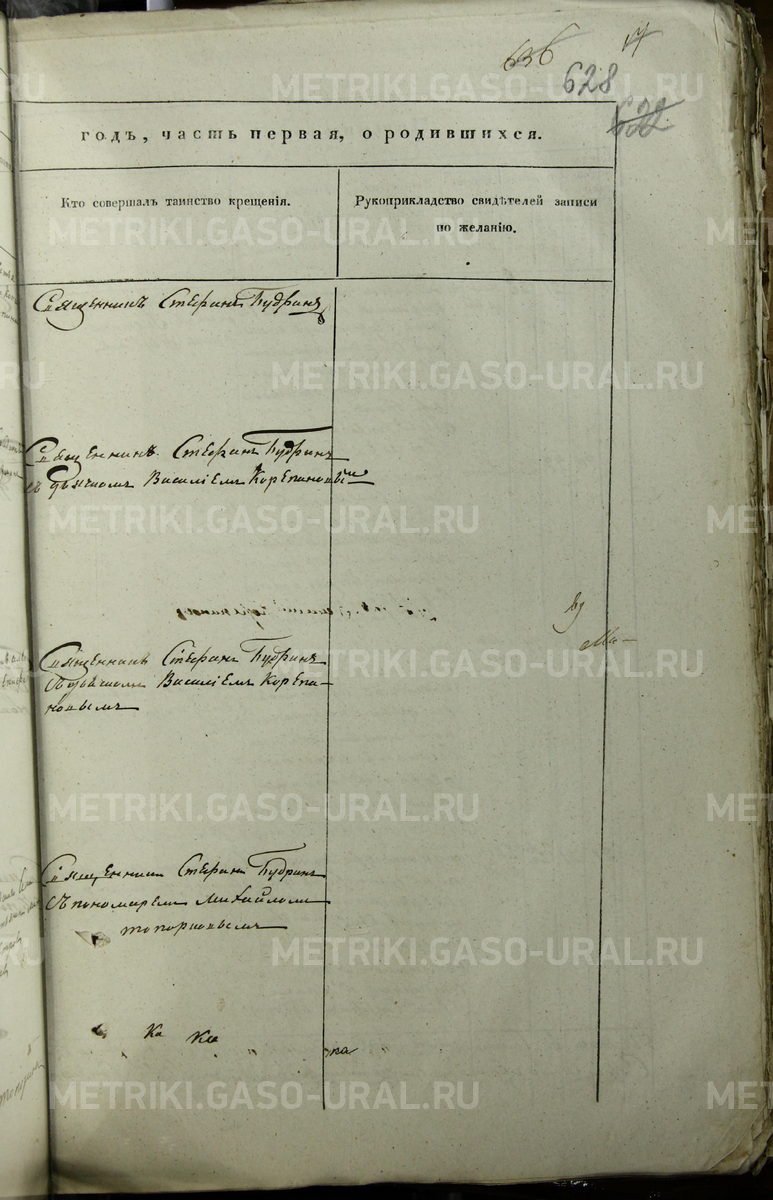 636
17
628
632
годъ, часть первая, о родившихся.
Кто совершалъ таинство крещенія.
Рукоприкладство свидѣтелей записи
по желанію.
Священникъ Стефанъ Кудринъ
Священникъ Стефанъ Кудринъ
съ дьячкомъ Василіемъ Корепановымъ
Священникъ Стефанъ Кудринъ
съ дьячкомъ Василіемъ Корепа-
новымъ
Священникъ Стефанъ Кудринъ
съ пономаремъ Михайломъ
Топорковымъ
METRIKI.GASO-URAL.RU